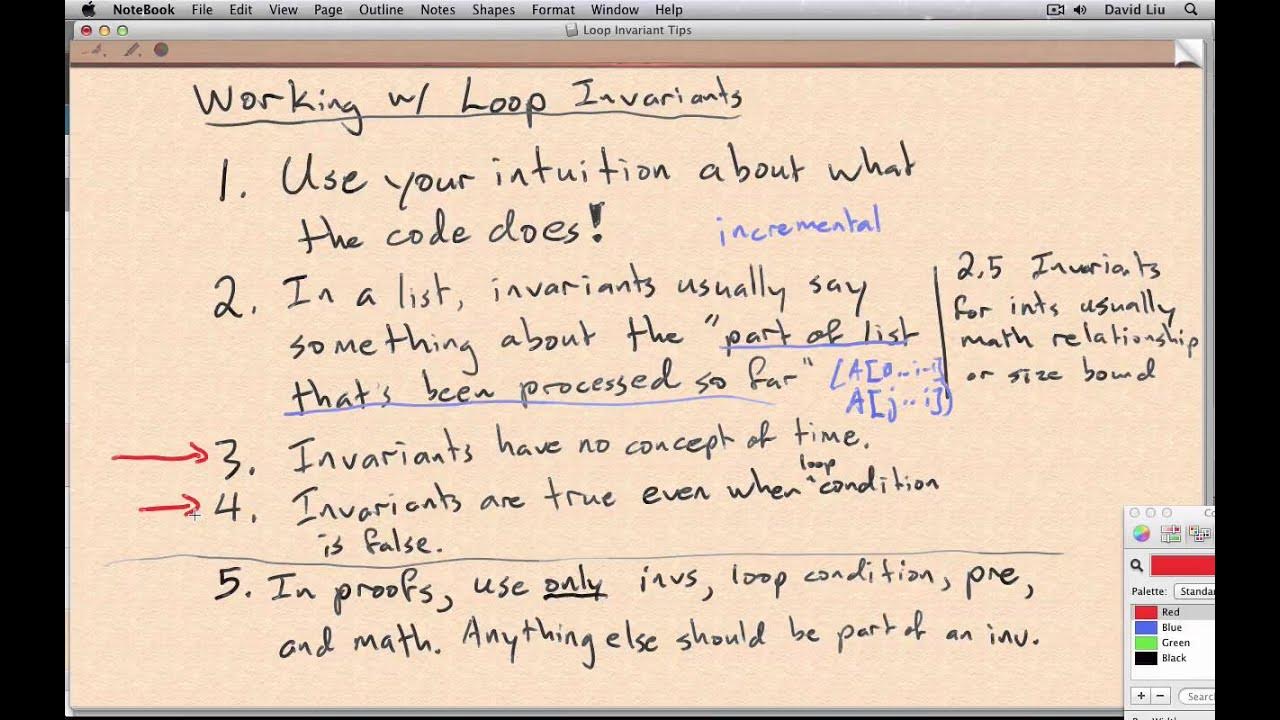 NoteBook File Edit View Page Outline Notes Shapes Format Window Help David Liu
Loop Invariant Tips
Working w/ Loop Invariants
1. Use your intuition about what
the code does!
incremental
2. In a list, invariants usually say
something about the "part of list
that's been processed so far"
(A[0..i-1]
A[j..i])
2.5 Invariants
for ints usually
math relationship
or size bound
3. Invariants have no concept of time.
4. Invariants are true even when ^loop condition
is false.
5. In proofs, use only invs, loop condition, pre,
and math. Anything else should be part of an inv.
Co
Palette: Standar
Red
Blue
Green
Black
+ −
Searc